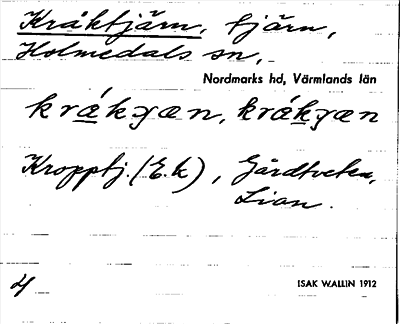 Kråktjärn, tjärn,
Holmedals sn,
Nordmarks hd, Värmlands län
kråkɣæn, kråkɣæn
Kropptj. (E.k), Gårdtveten,
Lian.
ISAK WALLIN 1912